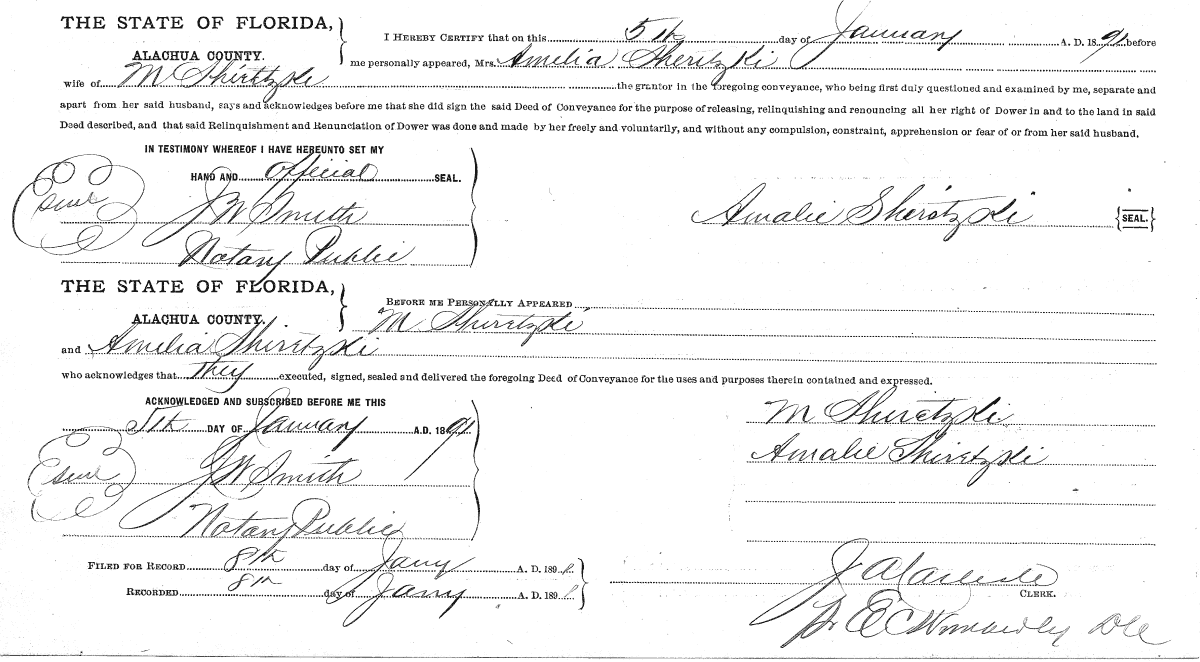 THE STATE OF FLORIDA,
ALACHUA COUNTY.
I HEREBY CERTIFY that on this 5th day of January A. D. 1891 before
me personally appeared, Mrs. Amelia Sheritzki
wife of M Shiretzki the grantor in the foregoing conveyance, who being first duly questioned and examined by me, separate and
apart from her said husband, says and acknowledges before me that she did sign the said Deed of Conveyance for the purpose of releasing, relinquishing and renouncing all her right of Dower in and to the land in said
Deed described, and that said Relinquishment and Renunciation of Dower was done and made by her freely and voluntarily, and without any compulsion, constraint, apprehension or fear of or from her said husband,
IN TESTIMONY WHEREOF I HAVE HEREUNTO SET MY
HAND AND official SEAL.
J W Smith
Notary Public
Amalie Sherotzki {SEAL.}
THE STATE OF FLORIDA,
ALACHUA COUNTY.
BEFORE ME PERSONALLY APPEARED
M Shiretzki
and Amelia Shiretzki
who acknowledges that They executed, signed, sealed and delivered the foregoing Deed of Conveyance for the uses and purposes therein contained and expressed.
ACKNOWLEDGED AND SUBSCRIBED BEFORE ME THIS
5th DAY OF January A.D. 1891
J W Smith
Notary Public
M Shiretzki
Amalie Shiretzki
FILED FOR RECORD 8th day of Jany A. D. 1891
RECORDED 8th day of Jany A. D. 1891
J A Carlisle
CLERK.
E C